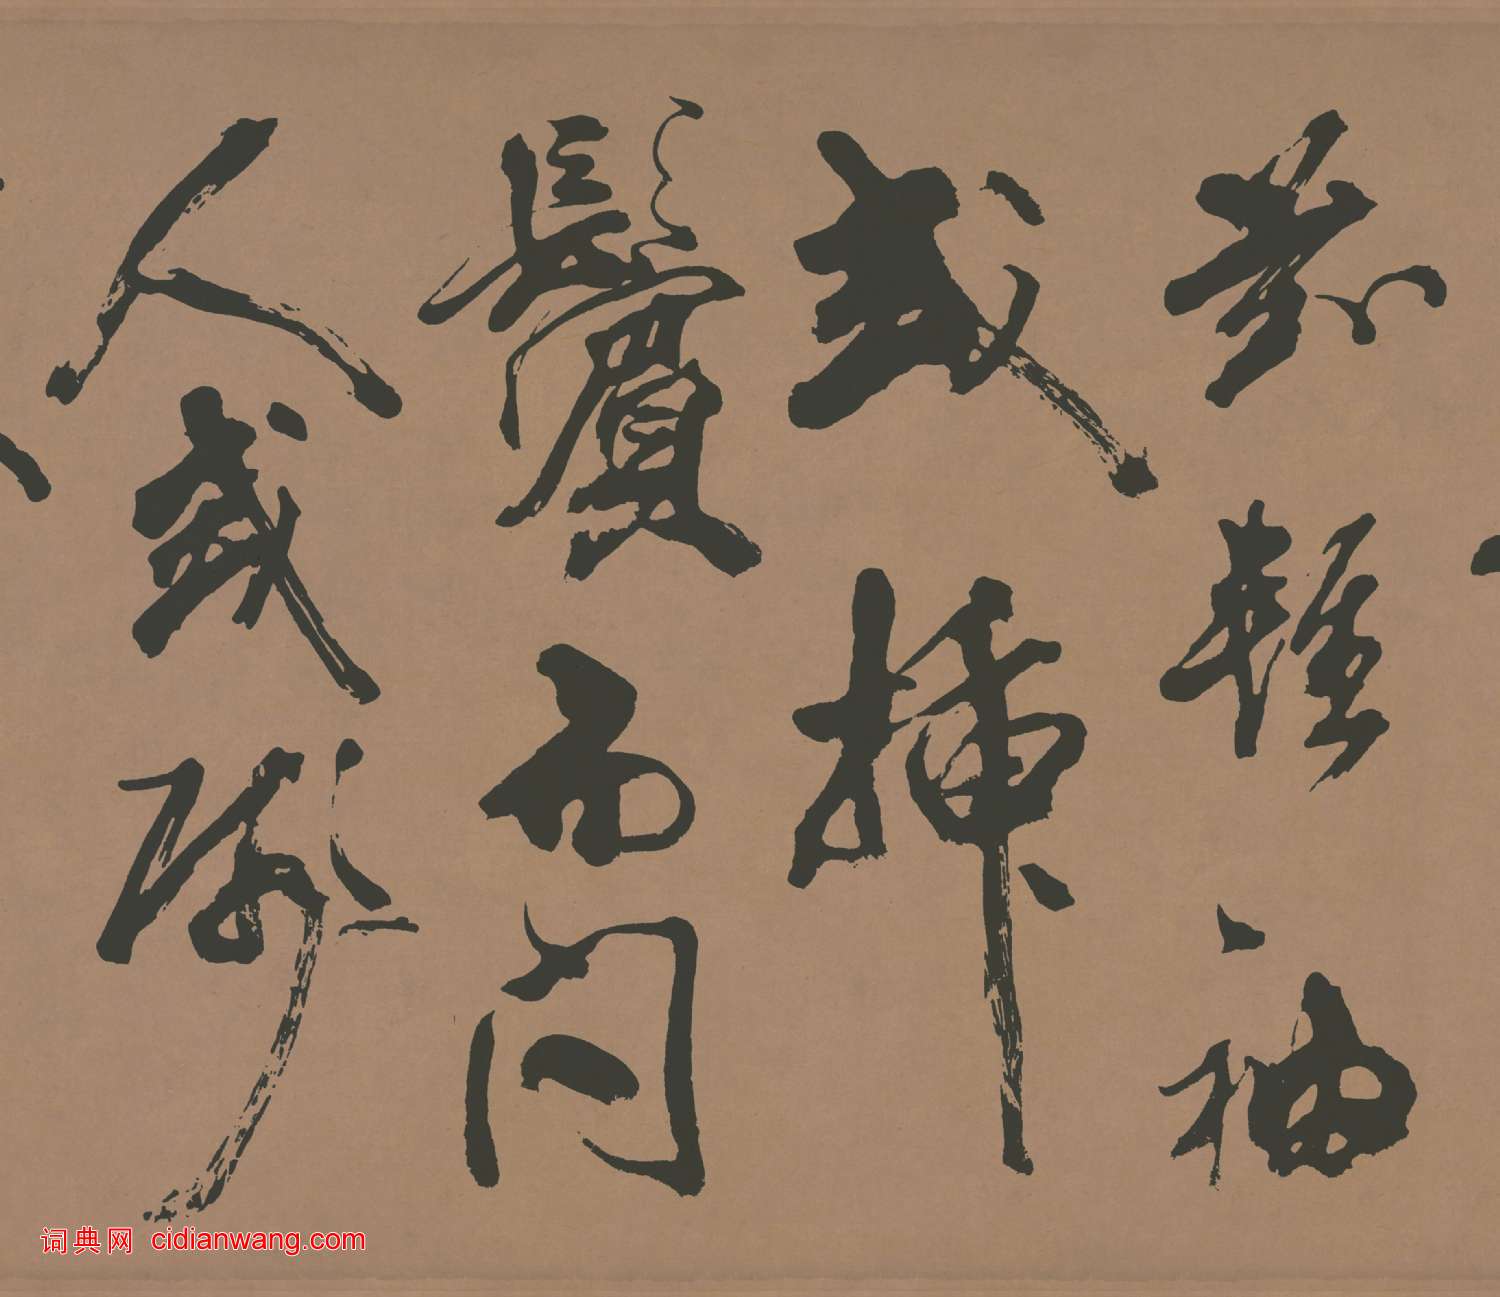 輕袖
或插
鬢而問
人或
词典网 cidianwang.com